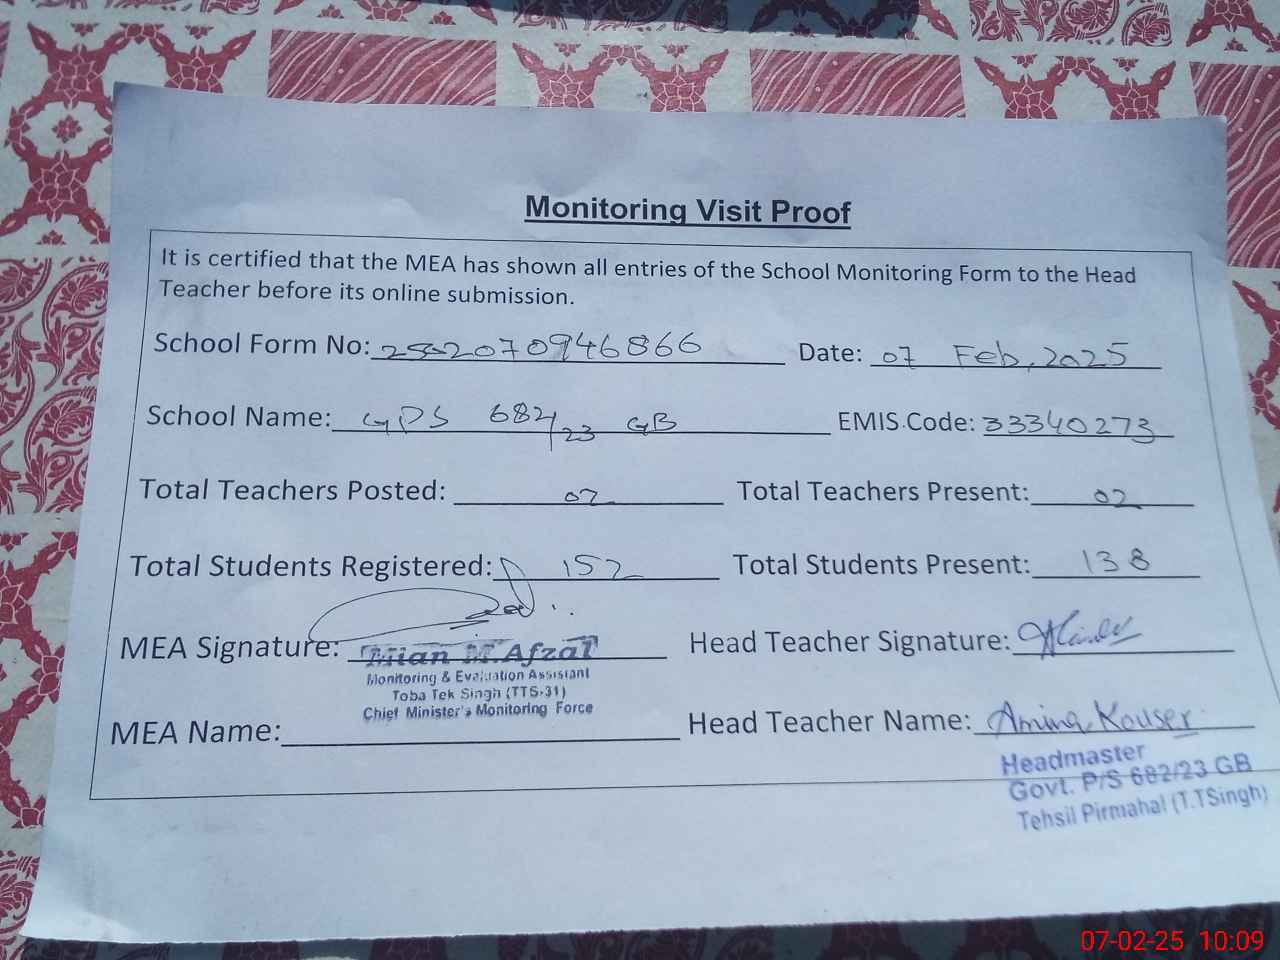 Monitoring Visit Proof
It is certified that the MEA has shown all entries of the School Monitoring Form to the Head
Teacher before its online submission.
School Form No: 2552070946866 Date: 07 Feb, 2025
School Name: GPS 682/23 GB EMIS Code: 33340273
Total Teachers Posted: 02 Total Teachers Present: 02
Total Students Registered: 152 Total Students Present: 138
MEA Signature: Head Teacher Signature:
Mian M. Afzal
Monitoring & Evaluation Assistant
Toba Tek Singh (TTS-31)
Chief Minister's Monitoring Force
MEA Name: Head Teacher Name: Amina Kouser
Headmaster
Govt. P/S 682/23 GB
Tehsil Pirmahal (T.TSingh)
07-02-25 10:09